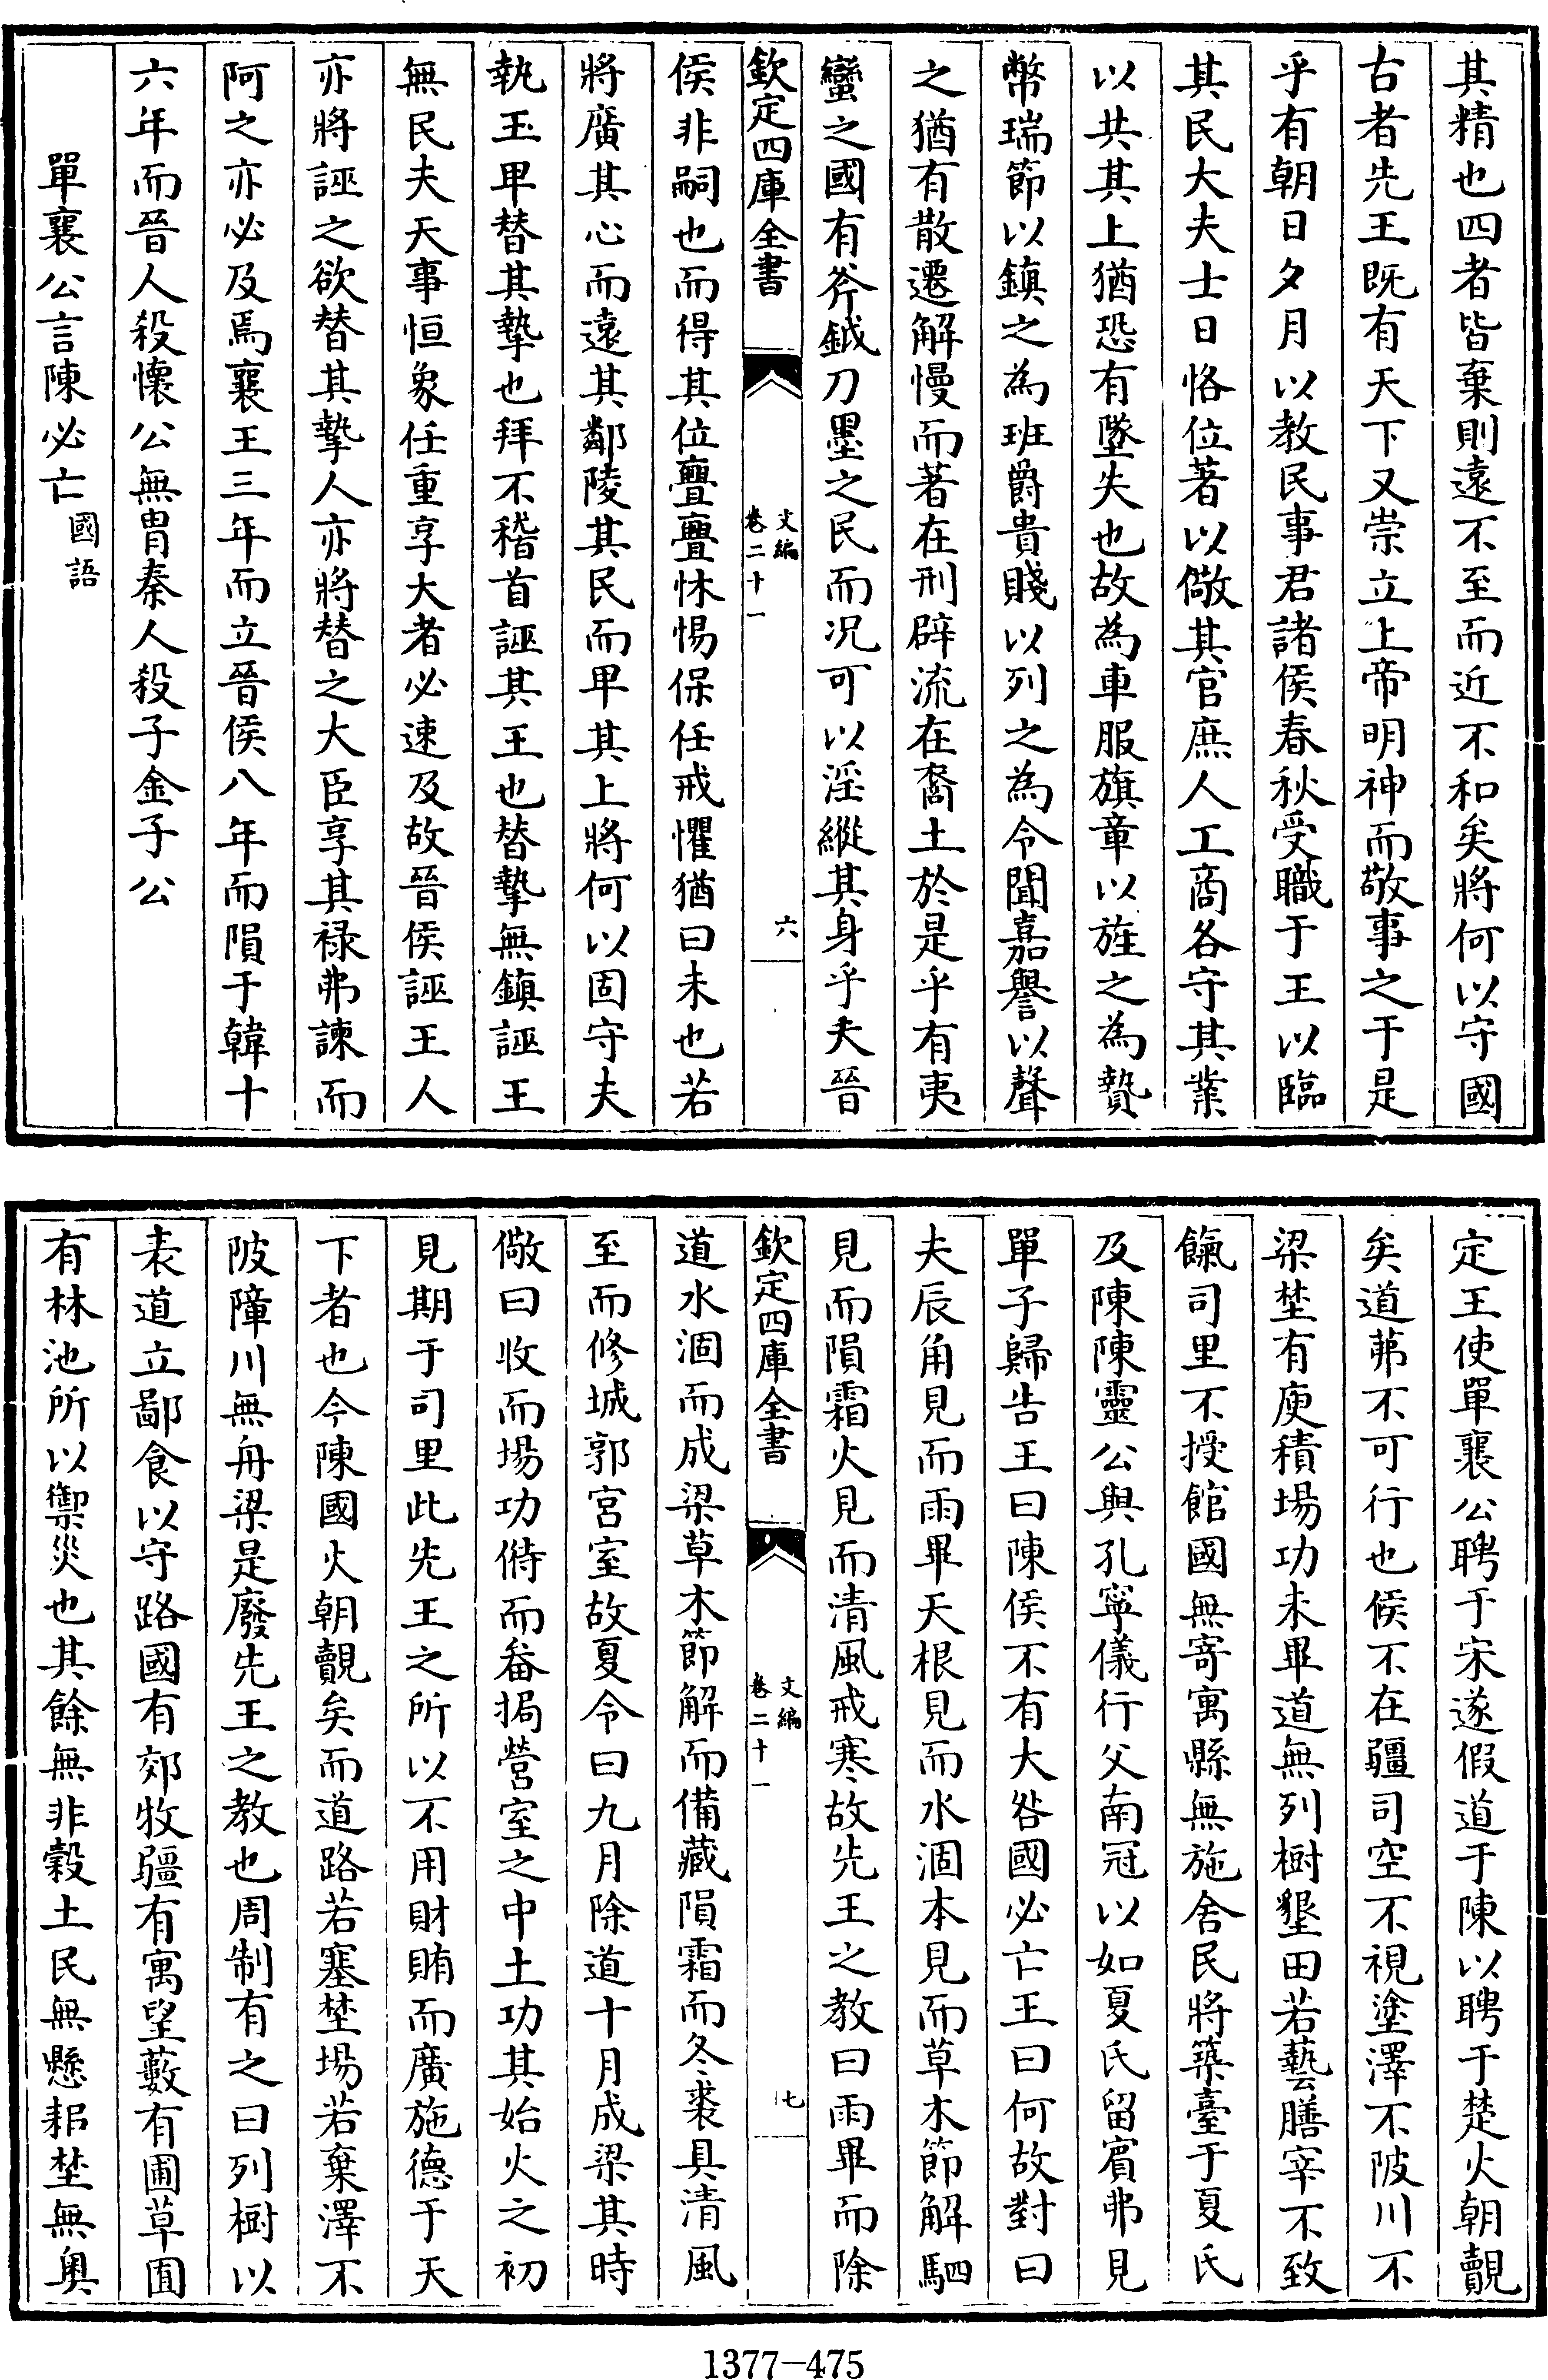 其精也四者皆棄則遠不至而近不和矣將何以守國
古者先王既有天下又崇立上帝明神而敬事之于是
乎有朝日夕月以教民事君諸侯春秋受職于王以臨
其民大夫士日恪位著以儆其官庶人工商各守其業
以共其上猶恐有墜失也故為車服旗章以旌之為贄
幣瑞節以鎮之為班爵貴賤以列之為令聞嘉譽以聲
之猶有散遷解慢而著在刑辟流在裔土於是乎有夷
蠻之國有斧鉞刀墨之民而况可以淫縱其身乎夫晉
欽定四庫全書
文編
卷二十一
六
侯非嗣也而得其位亹亹怵惕保任戒懼猶曰未也若
將廣其心而遠其鄰陵其民而甲其上將何以固守夫
執玉甲替其摯也拜不稽首誣其王也替摯無鎮誣王
無民夫天事恒象任重享大者必速及故晉侯誣王人
亦將誣之欲替其摯人亦將替之大臣享其祿弗諫而
阿之亦必及焉襄王三年而立晉侯八年而隕于韓十
六年而晉人殺懷公無胄秦人殺子金子公
單襄公言陳必亡國語
定王使單襄公聘于宋遂假道于陳以聘于楚火朝覿
矣道茀不可行也候不在疆司空不視塗澤不陂川不
梁埜有庾積場功未畢道無列樹墾田若藝膳宰不致
餼司里不授館國無寄寓縣無施舍民將築臺于夏氏
及陳陳靈公與孔寧儀行父南冠以如夏氏留賓弗見
單子歸告王曰陳侯不有大咎國必亡王曰何故對曰
夫辰角見而雨畢天根見而水涸本見而草木節解駟
見而隕霜火見而清風戒寒故先王之教曰雨畢而除
欽定四庫全書
文編
卷二十一
七
道水涸而成梁草木節解而備藏隕霜而冬裘具清風
至而修城郭宮室故夏令曰九月除道十月成梁其時
儆曰收而場功偫而畚挶營室之中土功其始火之初
見期于司里此先王之所以不用財賄而廣施德于天
下者也今陳國火朝覿矣而道路若塞埜場若棄澤不
陂障川無舟梁是廢先王之教也周制有之曰列樹以
表道立鄙食以守路國有郊牧疆有寓望藪有圃草囿
有林池所以禦災也其餘無非穀土民無懸耜埜無奥
1377—475